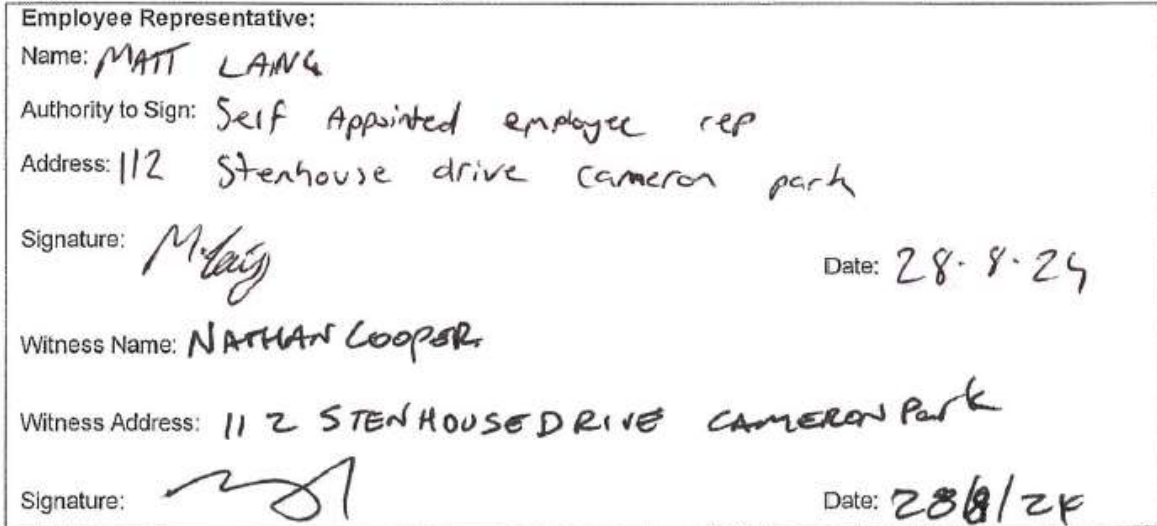 Employee Representative:
Name: MATT LAING
Authority to Sign: Self Appointed employee rep
Address: 112 Stenhouse drive cameron park
Signature: M. Laing Date: 28.8.24
Witness Name: NATHAN COOPER
Witness Address: 112 STENHOUSE DRIVE CAMERON Park
Signature: Date: 28/8/24